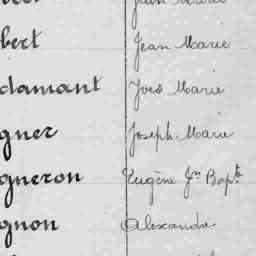 bert Jean Marie
damant Yves Marie
gner Joseph Marie
gneron Eugène Jn Bapte
gnon Alexandre